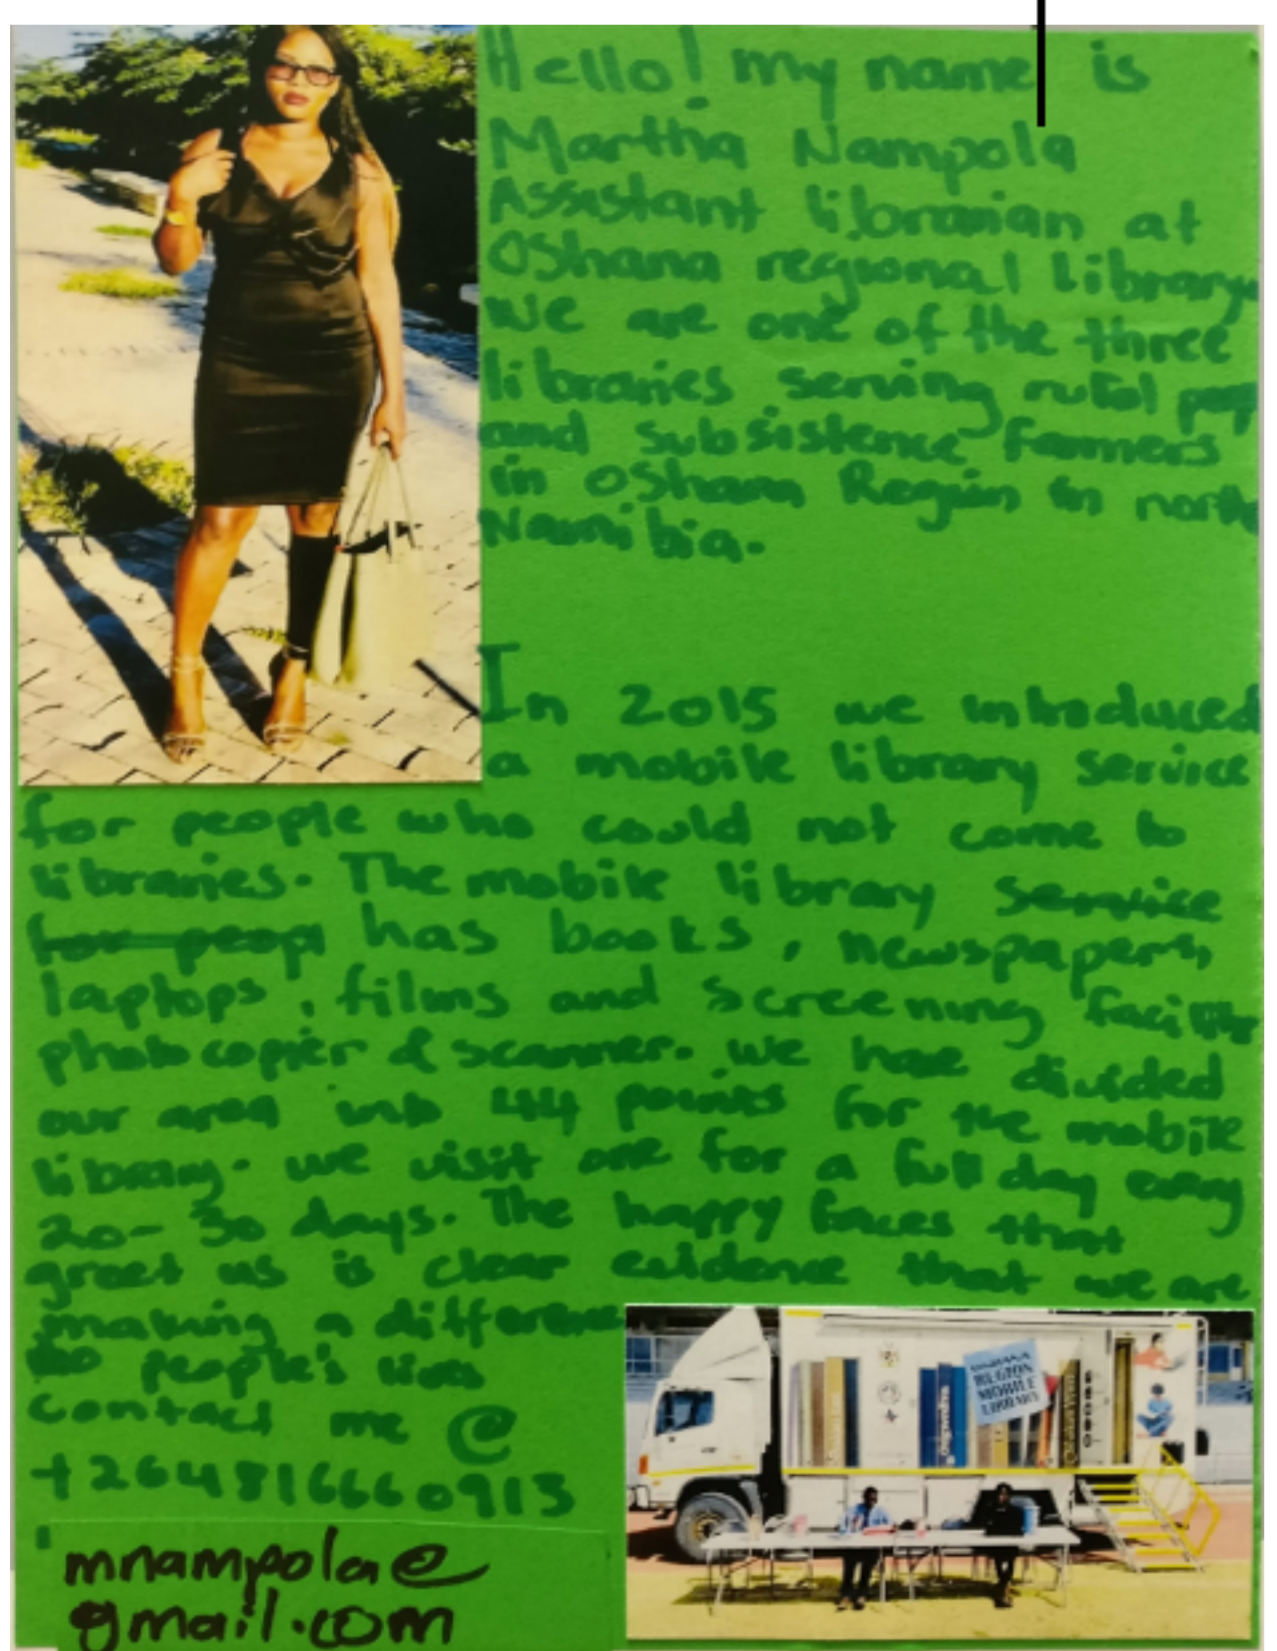 Hello! my name is
Martha Nampola
Assistant librarian at
Oshana regional library
we are one of the three
libraries serving rural
and subsistence farmers
in Oshana Region in north
Namibia.
In 2015 we introduced
a mobile library service
for people who could not come to
libraries. The mobile library service
for peopl has books, newspapers,
laptops, films and screening
photocopier & scanner. we have divided
our area into 44 points for the mobile
library. we visit one for a full day every
20-30 days. The happy faces that
greet us is clear evidence that we are
making a difference
to people's lives
contact me @
+264816660913
mnampola@
gmail.com
REGION
MOBILE
LIBRARY